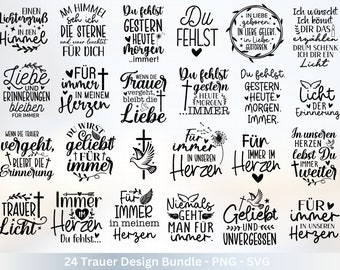 Einen
Lichtergruß
in den
Himmel
AM HIMMEL
seh ich
DIE STERNE
und einer leuchtet
FÜR DICH
Du fehlst
GESTERN
HEUTE
morgen
...immer!
Du
FEHLST
IN LIEBE
geboren,
IN LIEBE GELEBT,
in Liebe
GESTORBEN.
Ich wünscht
Ich könnt
DIR DAS
erzählen
DRUM SCHENK
ICH DIR EIN
Licht
Liebe
UND
ERINNERUNGEN
bleiben
FÜR IMMER
FÜR
immer
IN MEINEM
Herzen
WENN DIE
TRAUER
VERGEHT,
bleibt die
Liebe
Du fehlst
gestern
HEUTE
MORGEN
...IMMER
Du fehlst.
GESTERN.
HEUTE.
MORGEN.
IMMER.
Licht
DER
Erinnerung
WENN DIE TRAUER
vergeht,
BLEIBT DIE
Erinnerung
WIRST
geliebt
FÜR
immer
Für
immer
IN UNSEREN
Herzen
Für
IMMER IM
Herzen
In unseren
HERZEN
lebst Du
IMMER
weiter
TRAUER
Licht
Immer
IM
Herzen
Du fehlst...
FÜR
IMMER
in meinem
Herzen
Niemals
GEHT
MAN FÜR
immer.
Geliebt
UND
UNVERGESSEN
FÜR
immer
IN UNSEREN
Herzen
24 Trauer Design Bundle - PNG - SVG